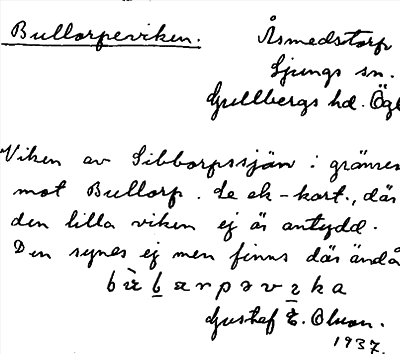 Bullorpeviken.
Åsmedstorp
Ljungs sn.
Gullbergs hd. Ögl
Viken av Sibborpssjön i gränsen
mot Bullorp. Se ek-kart., där
den lilla viken ej är antydd.
Den synes ej men finns där ändå
Gustaf E. Olson.
1937.